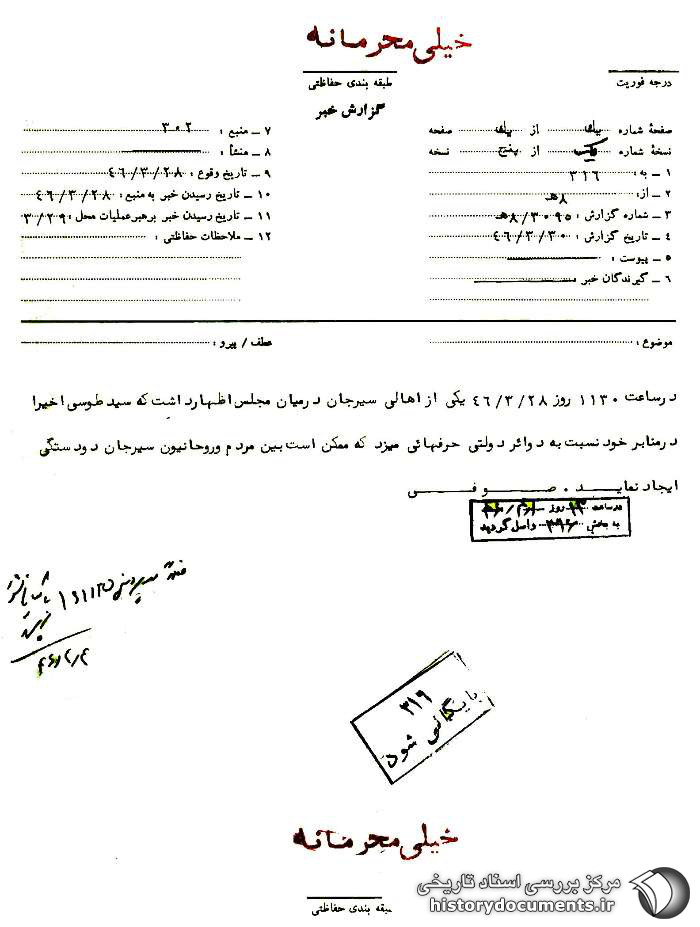 خیلی محرمانه
درجه فوریت
طبقه بندی حفاظتی
گزارش خبر
صفحهٔ شماره یک از یک صفحه
نسخهٔ شماره یک از پنج نسخه
۱ ـ به : ۳۱۶
۲ ـ از: ۸هـ
۳ ـ شماره گزارش : ۳۰۹۵/۸هـ
۴ ـ تاریخ گزارش : ۴۶/۳/۳۰
۵ ـ پیوست :
۶ ـ گیرندگان خبر
۷ ـ منبع : ۳۰۲
۸ ـ منشأ :
۹ ـ تاریخ وقوع : ۴۶/۳/۲۸
۱۰ ـ تاریخ رسیدن خبر به منبع : ۴۶/۳/۲۸
۱۱ ـ تاریخ رسیدن خبر برهبرعملیات محل : ۳/۲۹
۱۲ ـ ملاحظات حفاظتی :
موضوع :
عطف / پیرو :
درساعت ۱۱۳۰ روز ۴۶/۳/۲۸ یکی از اهالی سیرجان درمیان مجلس اظهارداشت که سید طوسی اخیرا
درمنابر خود نسبت به دوائر دولتی حرفهائی میزد که ممکن است بین مردم وروحانیون سیرجان دودستگی
ایجاد نماید . صوفی
درساعت ۱۳ روز
به بخش ۳۱۶ واصل گردید
۳۱۶
بایگانی شود
خیلی محرمانه
طبقه بندی حفاظتی
مرکز بررسی اسناد تاریخی
historydocuments.ir